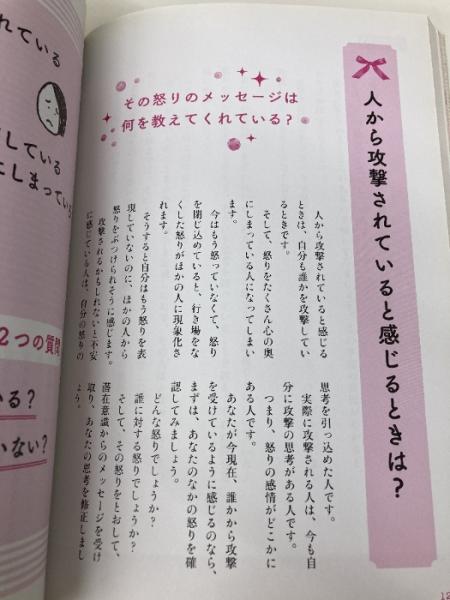 人から攻撃されていると感じるときは？
その怒りのメッセージは
何を教えてくれている？
人から攻撃されていると感じる
ときは、自分も誰かを攻撃してい
るときです。
そして、怒りをたくさん心の奥
にしまっている人になってしまい
ます。
今はもう怒っていなくて、怒り
を閉じ込めていると、行き場をな
くした怒りがほかの人に現象化さ
れます。
そうすると自分はもう怒りを表
現していないのに、ほかの人から
怒りをぶつけられそうに感じます。
攻撃されるかもしれないと不安
に感じている人は、自分の怒りの
思考を引っ込めた人です。
実際に攻撃される人は、今も自
分に攻撃の思考がある人です。
つまり、怒りの感情がどこかに
ある人です。
あなたが今現在、誰かから攻撃
を受けているように感じるのなら、
まずは、あなたのなかの怒りを確
認してみましょう。
どんな怒りでしょうか？
誰に対する怒りでしょうか？
そして、その怒りをとおして、
潜在意識からのメッセージを受け
取り、あなたの思考を修正しまし
ょう。
れている
している
にしまっている
2つの質問
いる？
いない？
12